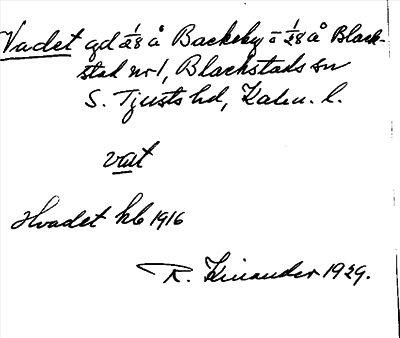 Vadet gd 1/28 å Backeby = 1/28 å Black-
stad nr 1, Blackstads sn
S. Tjusts hd, Kalm. l.
vat
Hvadet kb 1916
R. Kinander 1929.